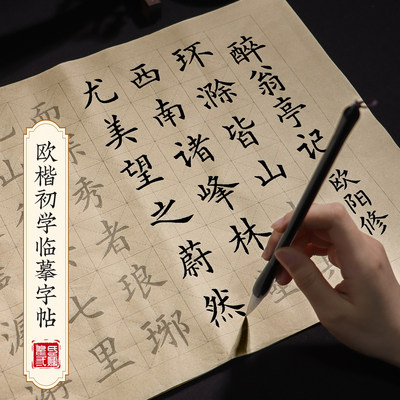 醉翁亭记
欧阳修
环滁皆山
西南诸峰林
尤美望之蔚然
而深秀者琅琊
七里
欧楷初学临摹字帖